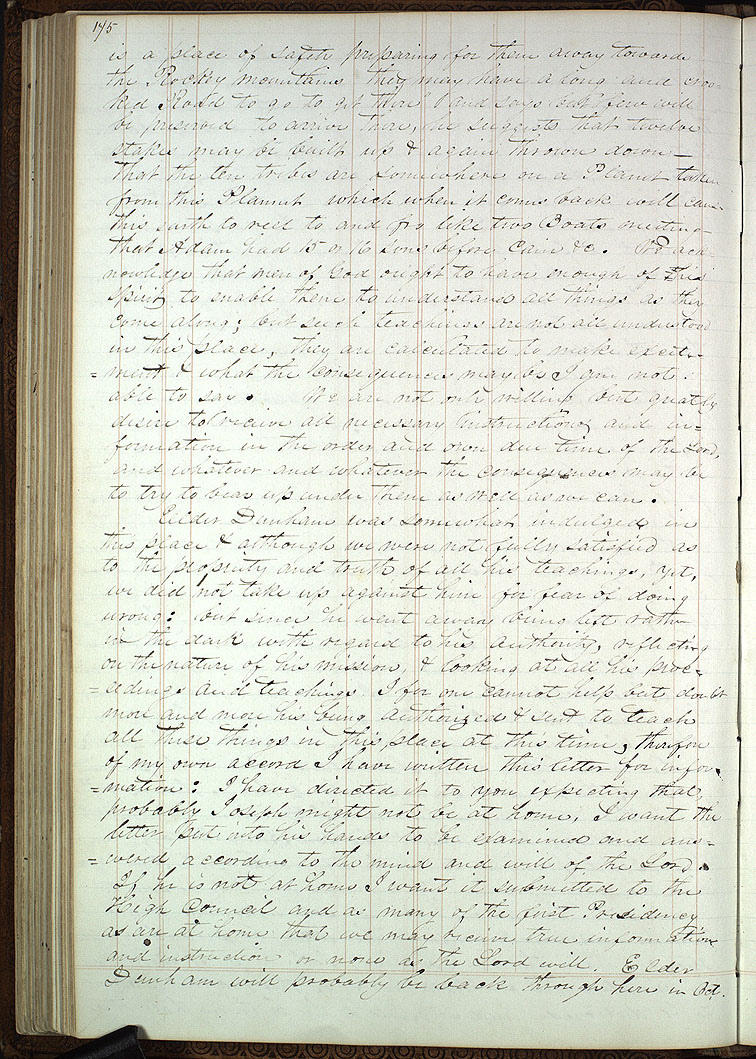 175
is a place of safety preparing for them away towards
the Rocky mountains they may have a long and croo-
ked Road to go to get there & and says but few will
be preserved to arrive there, he suggests that twelve
stakes may be built up & again thrown down—
that the ten tribes are somewhere on a Planet taken
from this Plannet which when it comes back will cause
this earth to reel to and fro like two Boats meeting—
that Adam had 15 or 16 sons before Cain &c. We ack-
nowledge that men of God ought to have enough of His
Spirit to enable them to understand all things as they
come along; but such teachings are not all understood
in this place, they are calculated to make excite-
=ment & what the consequences may be I am not
able to say. We are not only willing but greatly
desire to receive all necessary instructions and in=
formation in the order and own due time of the Lord,
and whatever and whatever the consequences may be
to try to bear up under them as well as we can.
Elder Dunham was somewhat indulged in
this place & although we were not fully satisfied as
to the propriety and truth of all his teachings, yet,
we did not take up against him for fear of doing
wrong: but since he went away being left rather
in the dark with regard to his authority, reflecting
on the nature of his mission, & looking at all his proc-
=eedings and teachings I for one cannot help but doubt
more and more his being authorized & sent to teach
all these things in this place at this time, therefore
of my own accord I have written this letter for infor-
=mation: I have directed it to you expecting that
probably Joseph might not be at home, I want the
letter put into his hands to be examined and ans=
=wered according to the mind and will of the Lord.
If he is not at home I want it submitted to the
High Council and as many of the first Presidency
as are at home that we may receive true information
and instruction or none as the Lord will. Elder
Dunham will probably be back through here in Oct.